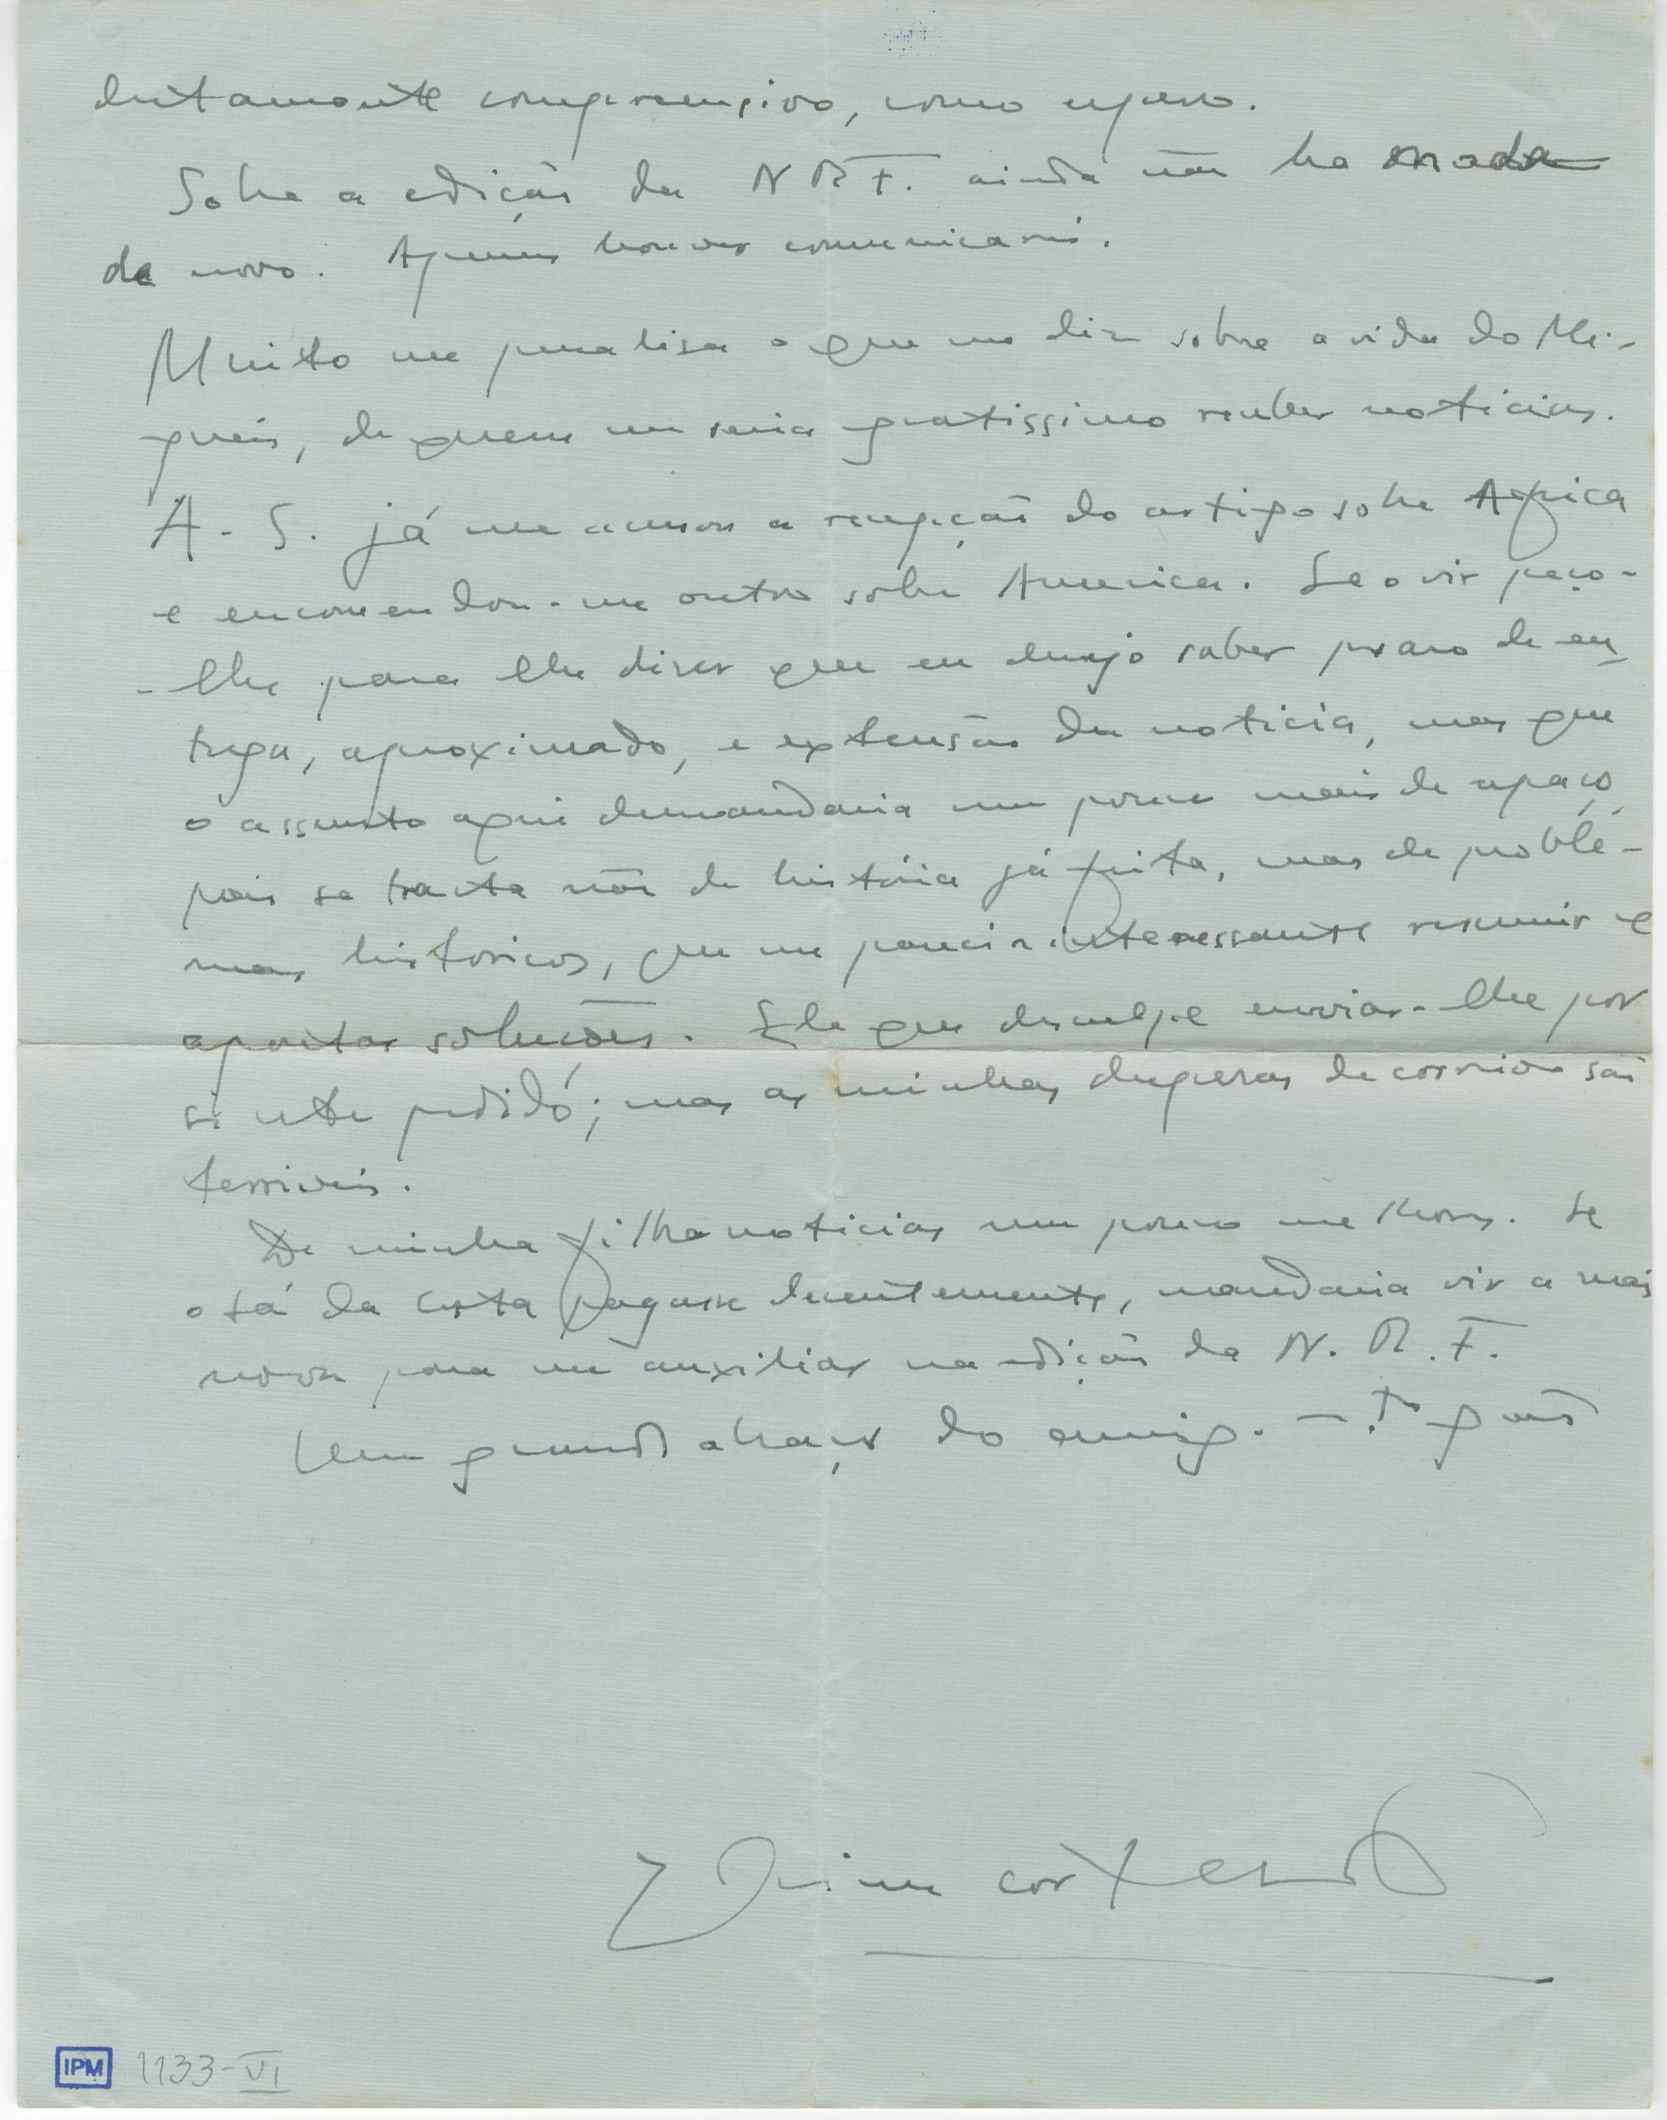 comprensivo, como espero.
Sobre a edição da N R F. ainda não ha nada
de novo. Apenas houver comunicarei.
Muito me penalisa o que me diz sobre a vida do Mi-
gueis, de quem me seria gratissimo receber noticias.
A. S. já me acusou a recepção do artigo sobre Africa
e encomendou-me outro sobre America. Se o vir peço-
-lhe para lhe dizer que eu desejo saber praso de en-
trega, aproximado, e extensão da noticia, mas que
o assunto aqui demandaria um pouco mais de espaço,
pois se tracta não de história já feita, mas de problê-
mas historicos, que me parecia interessante resumir e
apontar soluções. Ele que desculpe enviar-lhe por
si este pedido; mas as minhas despezas de correio são
terriveis.
De minha filha noticias um pouco melhores. Se
o Sá da Costa pagasse decentemente, mandaria vir a mais
nova para me auxiliar na edição da N. R. F.
Um grande abraço do amigo
Jaime Cortesão
IPM 1133-VI